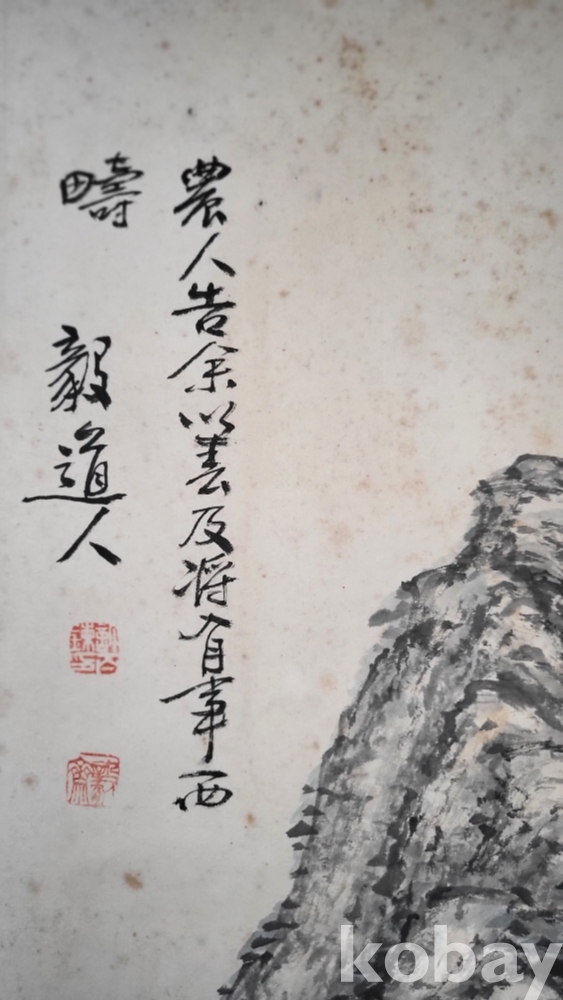 農人告余以春及將有事西
疇
毅道人
kobay